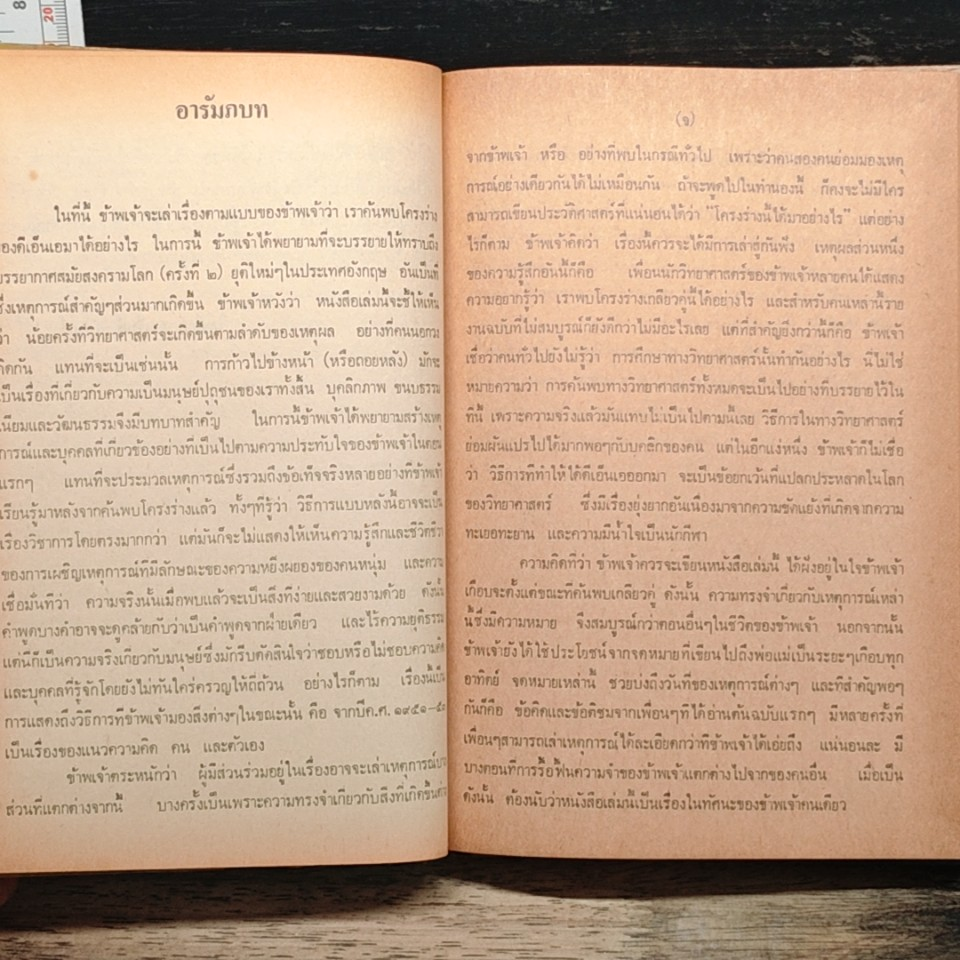 8
20
อารัมภบท
ในที่นี้ ข้าพเจ้าจะเล่าเรื่องตามแบบของข้าพเจ้าว่า เราค้นพบโครงร่าง
ของดีเอ็นเอมาได้อย่างไร ในการนี้ ข้าพเจ้าได้พยายามที่จะบรรยายให้ทราบถึง
บรรยากาศสมัยสงครามโลก (ครั้งที่ ๒) ยุติใหม่ๆในประเทศอังกฤษ อันเป็นที่
ซึ่งเหตุการณ์สำคัญๆส่วนมากเกิดขึ้น ข้าพเจ้าหวังว่า หนังสือเล่มนี้จะชี้ให้เห็น
ว่า น้อยครั้งที่วิทยาศาสตร์จะเกิดขึ้นตามลำดับของเหตุผล อย่างที่คนนอกวง
คิดกัน แทนที่จะเป็นเช่นนั้น การก้าวไปข้างหน้า (หรือถอยหลัง) มักจะ
เป็นเรื่องที่เกี่ยวกับความเป็นมนุษย์ปุถุชนของเราทั้งสิ้น บุคลิกภาพ ขนบธรรม
เนียมและวัฒนธรรมจึงมีบทบาทสำคัญ ในการนี้ข้าพเจ้าได้พยายามสร้างเหตุ
การณ์และบุคคลที่เกี่ยวข้องอย่างที่เป็นไปตามความประทับใจของข้าพเจ้าในตอน
แรกๆ แทนที่จะประมวลเหตุการณ์ซึ่งรวมถึงข้อเท็จจริงหลายอย่างที่ข้าพเจ้า
เรียนรู้มาหลังจากค้นพบโครงร่างแล้ว ทั้งๆที่รู้ว่า วิธีการแบบหลังนี้อาจจะเป็น
เรื่องวิชาการโดยตรงมากกว่า แต่มันก็จะไม่แสดงให้เห็นความรู้สึกและชีวิตชีวา
ของการเผชิญเหตุการณ์ที่มีลักษณะของความหยิ่งผยองของคนหนุ่ม และความ
เชื่อมั่นที่ว่า ความจริงนั้นเมื่อพบแล้วจะเป็นสิ่งที่ง่ายและสวยงามด้วย ดังนั้น
คำพูดบางคำอาจจะดูคล้ายกับว่าเป็นคำพูดจากฝ่ายเดียว และไร้ความยุติธรรม
แต่นี่ก็เป็นความจริงเกี่ยวกับมนุษย์ซึ่งมักรีบตัดสินใจว่าชอบหรือไม่ชอบความคิด
และบุคคลที่รู้จักโดยยังไม่ทันใคร่ครวญให้ถี่ถ้วน อย่างไรก็ตาม เรื่องนี้เป็น
การแสดงถึงวิธีการที่ข้าพเจ้ามองสิ่งต่างๆในขณะนั้น คือ จากปีค.ศ. ๑๙๕๑-๕๓
เป็นเรื่องของแนวความคิด คน และตัวเอง
ข้าพเจ้าตระหนักว่า ผู้มีส่วนร่วมอยู่ในเรื่องอาจจะเล่าเหตุการณ์บาง
ส่วนที่แตกต่างจากนี้ บางครั้งเป็นเพราะความทรงจำเกี่ยวกับสิ่งที่เกิดขึ้นต่าง
(จ)
จากข้าพเจ้า หรือ อย่างที่พบในกรณีทั่วไป เพราะว่าคนสองคนย่อมมองเหตุ
การณ์อย่างเดียวกันได้ไม่เหมือนกัน ถ้าจะพูดไปในทำนองนี้ ก็คงจะไม่มีใคร
สามารถเขียนประวัติศาสตร์ที่แน่นอนได้ว่า "โครงร่างนี้ได้มาอย่างไร" แต่อย่าง
ไรก็ตาม ข้าพเจ้าคิดว่า เรื่องนี้ควรจะได้มีการเล่าสู่กันฟัง เหตุผลส่วนหนึ่ง
ของความรู้สึกอันนี้ก็คือ เพื่อนนักวิทยาศาสตร์ของข้าพเจ้าหลายคนได้แสดง
ความอยากรู้ว่า เราพบโครงร่างเกลียวคู่นี้ได้อย่างไร และสำหรับคนเหล่านี้ราย
งานฉบับที่ไม่สมบูรณ์ก็ยังดีกว่าไม่มีอะไรเลย แต่ที่สำคัญยิ่งกว่านี้ก็คือ ข้าพเจ้า
เชื่อว่าคนทั่วไปยังไม่รู้ว่า การศึกษาทางวิทยาศาสตร์นั้นทำกันอย่างไร นี่ไม่ใช่
หมายความว่า การค้นพบทางวิทยาศาสตร์ทั้งหมดจะเป็นไปอย่างที่บรรยายไว้ใน
ที่นี้ เพราะความจริงแล้วมันแทบไม่เป็นไปตามนั้นเลย วิธีการในทางวิทยาศาสตร์
ย่อมผันแปรไปได้มากพอๆกับบุคลิกของคน แต่ในอีกแง่หนึ่ง ข้าพเจ้าก็ไม่เชื่อ
ว่า วิธีการที่ทำให้ได้ดีเอ็นเอออกมา จะเป็นข้อยกเว้นที่แปลกประหลาดในโลก
ของวิทยาศาสตร์ ซึ่งมีเรื่องยุ่งยากอันเนื่องมาจากความขัดแย้งที่เกิดจากความ
ทะเยอทะยาน และความมีน้ำใจเป็นนักกีฬา
ความคิดที่ว่า ข้าพเจ้าควรจะเขียนหนังสือเล่มนี้ ได้ฝังอยู่ในใจข้าพเจ้า
เกือบจะตั้งแต่ขณะที่ค้นพบเกลียวคู่ ดังนั้น ความทรงจำเกี่ยวกับเหตุการณ์เหล่า
นี้ซึ่งมีความหมาย จึงสมบูรณ์กว่าตอนอื่นๆในชีวิตของข้าพเจ้า นอกจากนั้น
ข้าพเจ้ายังได้ใช้ประโยชน์จากจดหมายที่เขียนไปถึงพ่อแม่เป็นระยะๆเกือบทุก
อาทิตย์ จดหมายเหล่านี้ ช่วยบ่งถึงวันที่ของเหตุการณ์ต่างๆ และที่สำคัญพอๆ
กันก็คือ ข้อคิดและข้อติชมจากเพื่อนๆที่ได้อ่านต้นฉบับแรกๆ มีหลายครั้งที่
เพื่อนๆสามารถเล่าเหตุการณ์ได้ละเอียดกว่าที่ข้าพเจ้าได้เอ่ยถึง แน่นอนละ มี
บางตอนที่การรื้อฟื้นความจำของข้าพเจ้าแตกต่างไปจากของคนอื่น เมื่อเป็น
ดังนั้น ต้องนับว่าหนังสือเล่มนี้เป็นเรื่องในทัศนะของข้าพเจ้าคนเดียว